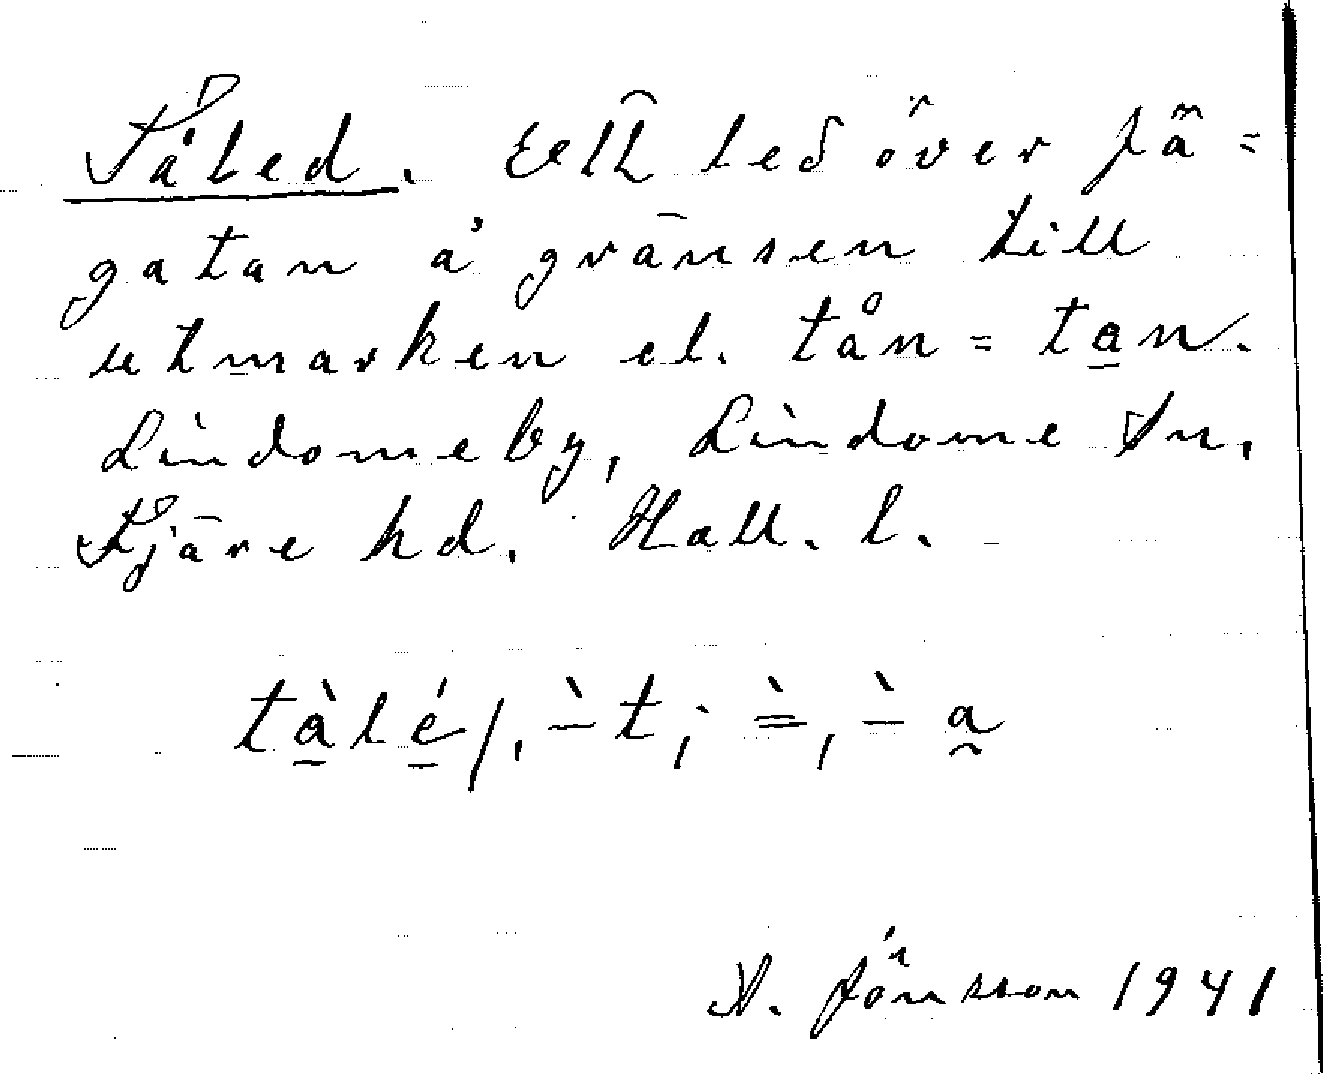 Tåled. Ett led över fä=
gatan å gränsen till
utmarken el. tån = tan.
Lindome by, Lindome sn,
Fjäre hd. Hall. l.
tàlé/, -̀t; =̀, -̀a
A. Jönsson 1941